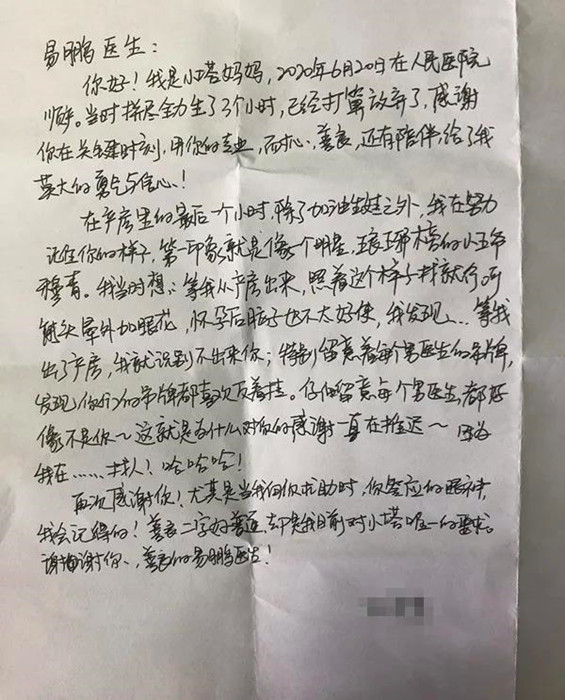 易鹏医生：
你好！我是小塔妈妈，2020年6月20日在人民医院
顺产。当时拼尽全力生了3个小时，已经打算放弃了，感谢
你在关键时刻，用你的专业，而才心、善良，还有陪伴，给了我
莫大的勇气与信心！
在产房里的最后一个小时，除了加油生娃之外，我在努力
记住你的样子，第一印象就是像一个明星，琅琊榜的小王爷
穆青。我当时想：等我从产房出来，照着这个样子找就行，可
能头晕外加眼花，怀孕后脑子也不太好使，我发现… 等我
出了产房，我就识别不出来你；特别留意着每个男医生的吊牌，
发现你们的吊牌都喜欢反着挂。仔细留意每个男医生，都好
像不是你～这就是为什么对你的感谢一直在推迟～因为
我在……找人！哈哈哈！
再次感谢你！尤其是当我向你求助时，你答应的眼神，
我会记得的！善良二字好普通，却是我目前对小塔唯一的要求。
谢谢你、善良的易鹏医生！